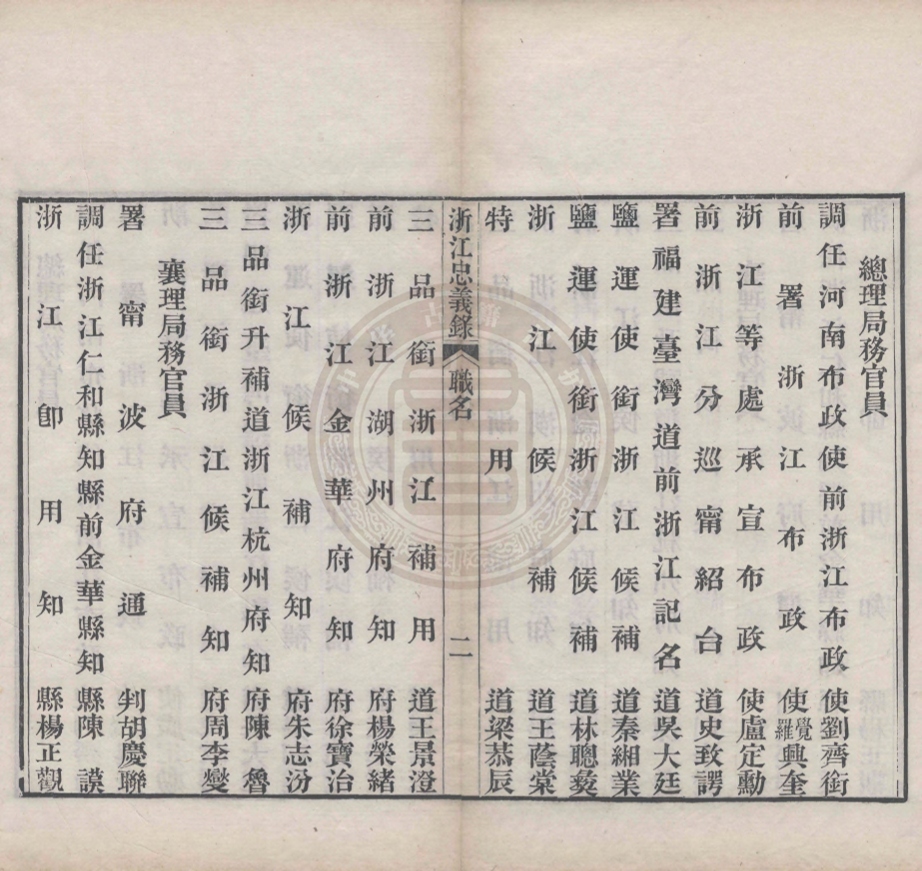 總理局務官員
調任河南布政使前浙江布政使劉齊銜
前署浙江布政使覺羅興奎
浙江等處承宣布政使盧定勳
前浙江分巡甯紹台道史致諤
署福建臺灣道前浙江記名道吳大廷
鹽運使銜浙江候補道秦緗業
鹽運使銜浙江候補道林聰彝
浙江候補道王蔭棠
特用道梁恭辰
浙江忠義錄 職名 二
三品銜浙江補用道王景澄
前浙江湖州府知府楊榮緒
前浙江金華府知府徐寶治
浙江候補知府朱志汾
三品銜升補道浙江杭州府知府陳魯
三品銜浙江候補知府周李燮
襄理局務官員
署甯波府通判胡慶聯
調任浙江仁和縣知縣前金華縣知縣陳謨
浙江卽用知縣楊正觀